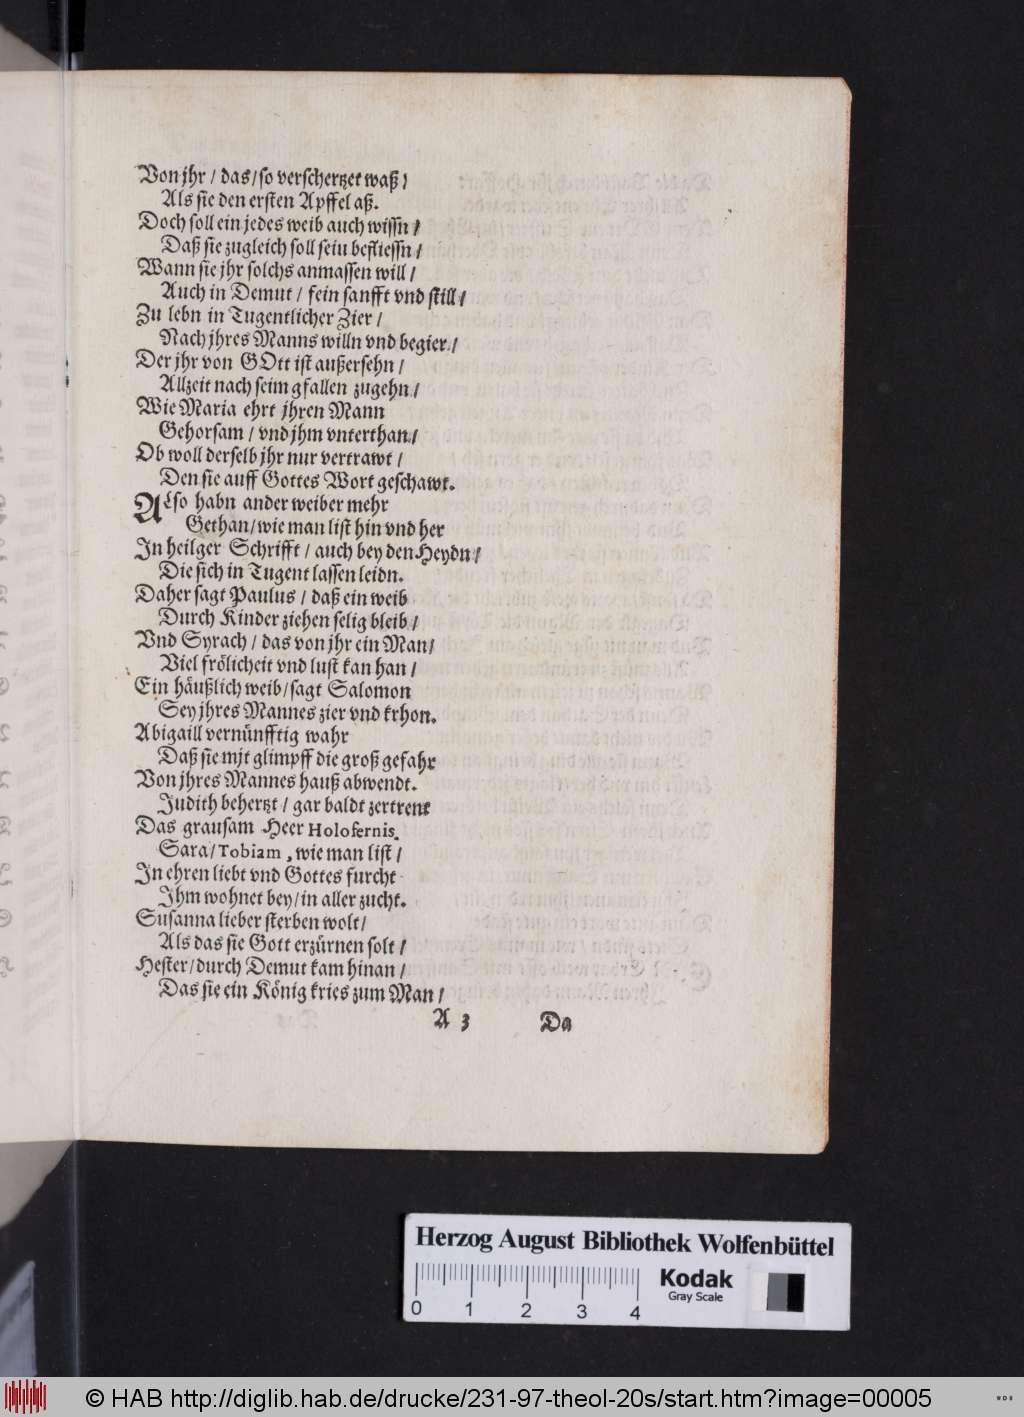 Von jhr / das / so verschertzet waß /
Als sie den ersten Apffel aß.
Doch soll ein jedes weib auch wissn /
Daß sie zugleich soll sein befliessn /
Wann sie jhr solchs anmassen will /
Auch in Demut / fein sanfft vnd still /
Zu lebn in Tugentlicher Zier /
Nach jhres Manns willn vnd begier /
Der jhr von GOtt ist außersehn /
Allzeit nach seim gfallen zugehn /
Wie Maria ehrt jhren Mann
Gehorsam / vnd jhm vnterthan /
Ob woll derselb jhr nur vertrawt /
Den sie auff Gottes Wort geschawt.
Also habn ander weiber mehr
Gethan / wie man list hin vnd her
In heilger Schrifft / auch bey den Heydn /
Die sich in Tugent lassen leidn.
Daher sagt Paulus / daß ein weib
Durch Kinder ziehen selig bleib /
Vnd Syrach / das von jhr ein Man /
Viel frölicheit vnd lust kan han /
Ein häußlich weib / sagt Salomon
Sey jhres Mannes zier vnd krhon.
Abigaill vernünfftig wahr
Daß sie mit glimpff die groß gefahr
Von jhres Mannes hauß abwendt.
Judith behertzt / gar baldt zertrent
Das grausam Heer Holofernis.
Sara / Tobiam, wie man list /
In ehren liebt vnd Gottes furcht
Ihm wohnet bey / in aller zucht.
Susanna lieber sterben wolt /
Als das sie Gott erzürnen solt /
Hester / durch Demut kam hinan /
Das sie ein König kries zum Man /
A 3 Da
Herzog August Bibliothek Wolfenbüttel
Kodak
Gray Scale
0 1 2 3 4
© HAB http://diglib.hab.de/drucke/231-97-theol-20s/start.htm?image=00005